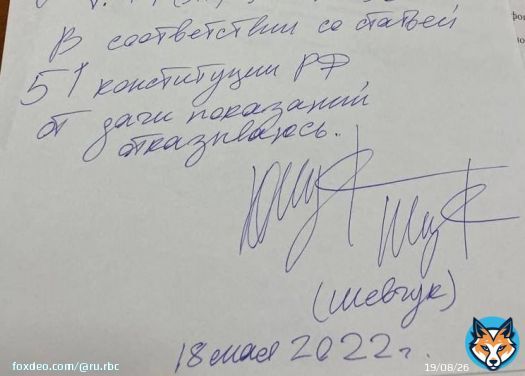 В соответствии со статьей
51 конституции РФ
от дачи показаний
отказываюсь.
(Шевчук)
18 мая 2022 г.
foxdeo.com/@ru.rbc
19/08/26